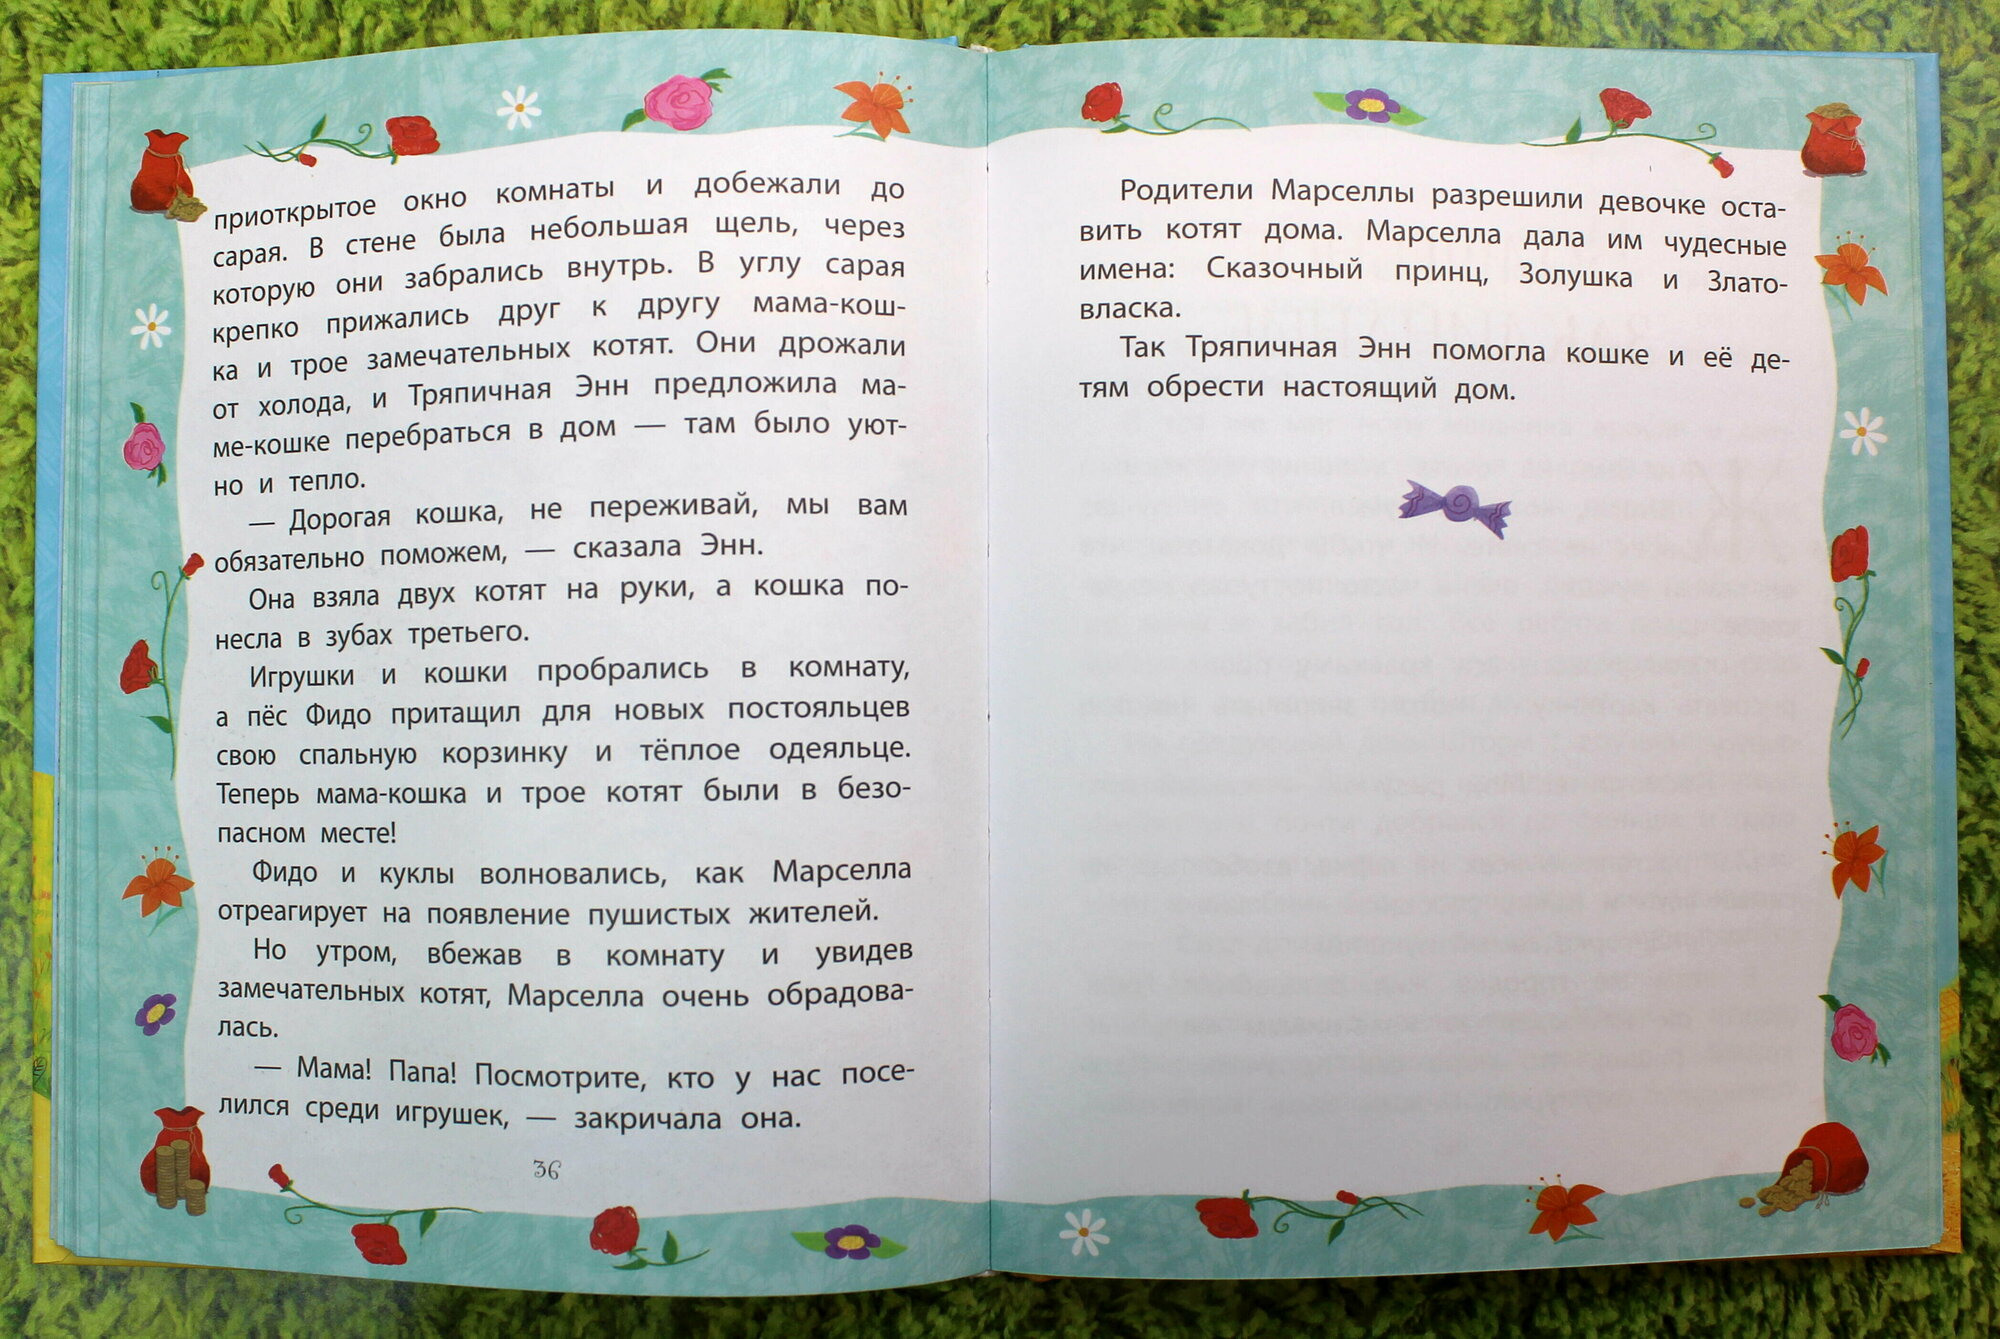 приоткрытое окно комнаты и добежали до
сарая. В стене была небольшая щель, через
которую они забрались внутрь. В углу сарая
крепко прижались друг к другу мама-кош-
ка и трое замечательных котят. Они дрожали
от холода, и Тряпичная Энн предложила ма-
ме-кошке перебраться в дом — там было уют-
но и тепло.
— Дорогая кошка, не переживай, мы вам
обязательно поможем, — сказала Энн.
Она взяла двух котят на руки, а кошка по-
несла в зубах третьего.
Игрушки и кошки пробрались в комнату,
а пёс Фидо притащил для новых постояльцев
свою спальную корзинку и тёплое одеяльце.
Теперь мама-кошка и трое котят были в безо-
пасном месте!
Фидо и куклы волновались, как Марселла
отреагирует на появление пушистых жителей.
Но утром, вбежав в комнату и увидев
замечательных котят, Марселла очень обрадова-
лась.
— Мама! Папа! Посмотрите, кто у нас посе-
лился среди игрушек, — закричала она.
36
Родители Марселлы разрешили девочке оста-
вить котят дома. Марселла дала им чудесные
имена: Сказочный принц, Золушка и Злато-
власка.
Так Тряпичная Энн помогла кошке и её де-
тям обрести настоящий дом.